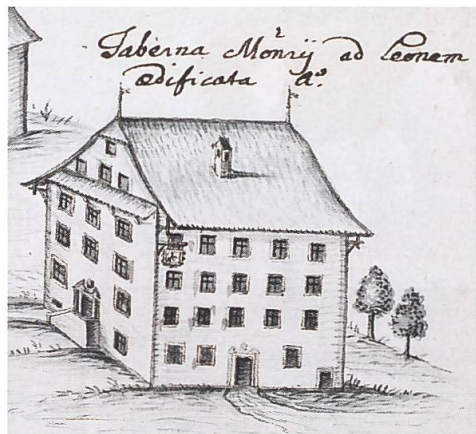 Taberna Monrij ad Leonem
ædificata Aº